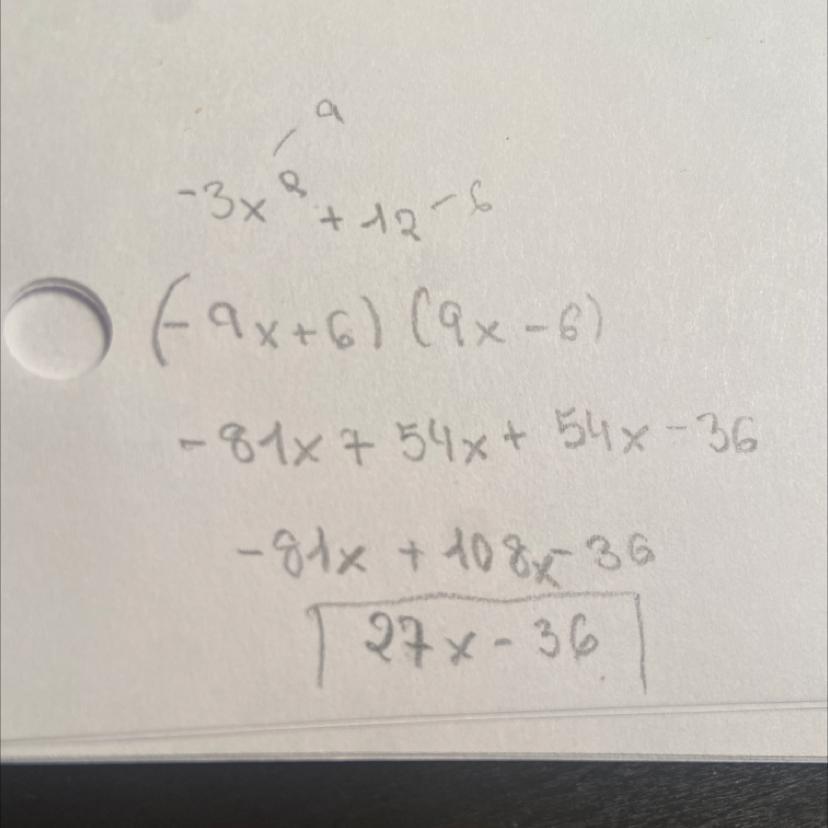 9
-3x² + 12 - 6
(-9x+6) (9x-6)
-81x + 54x + 54x - 36
-81x + 108x - 36
27x - 36